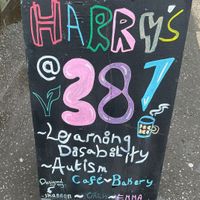 HARRY'S
@
387
~Learning
Disability
~Autism
Café ~ Bakery
Designed
by
Shannon
EMMA